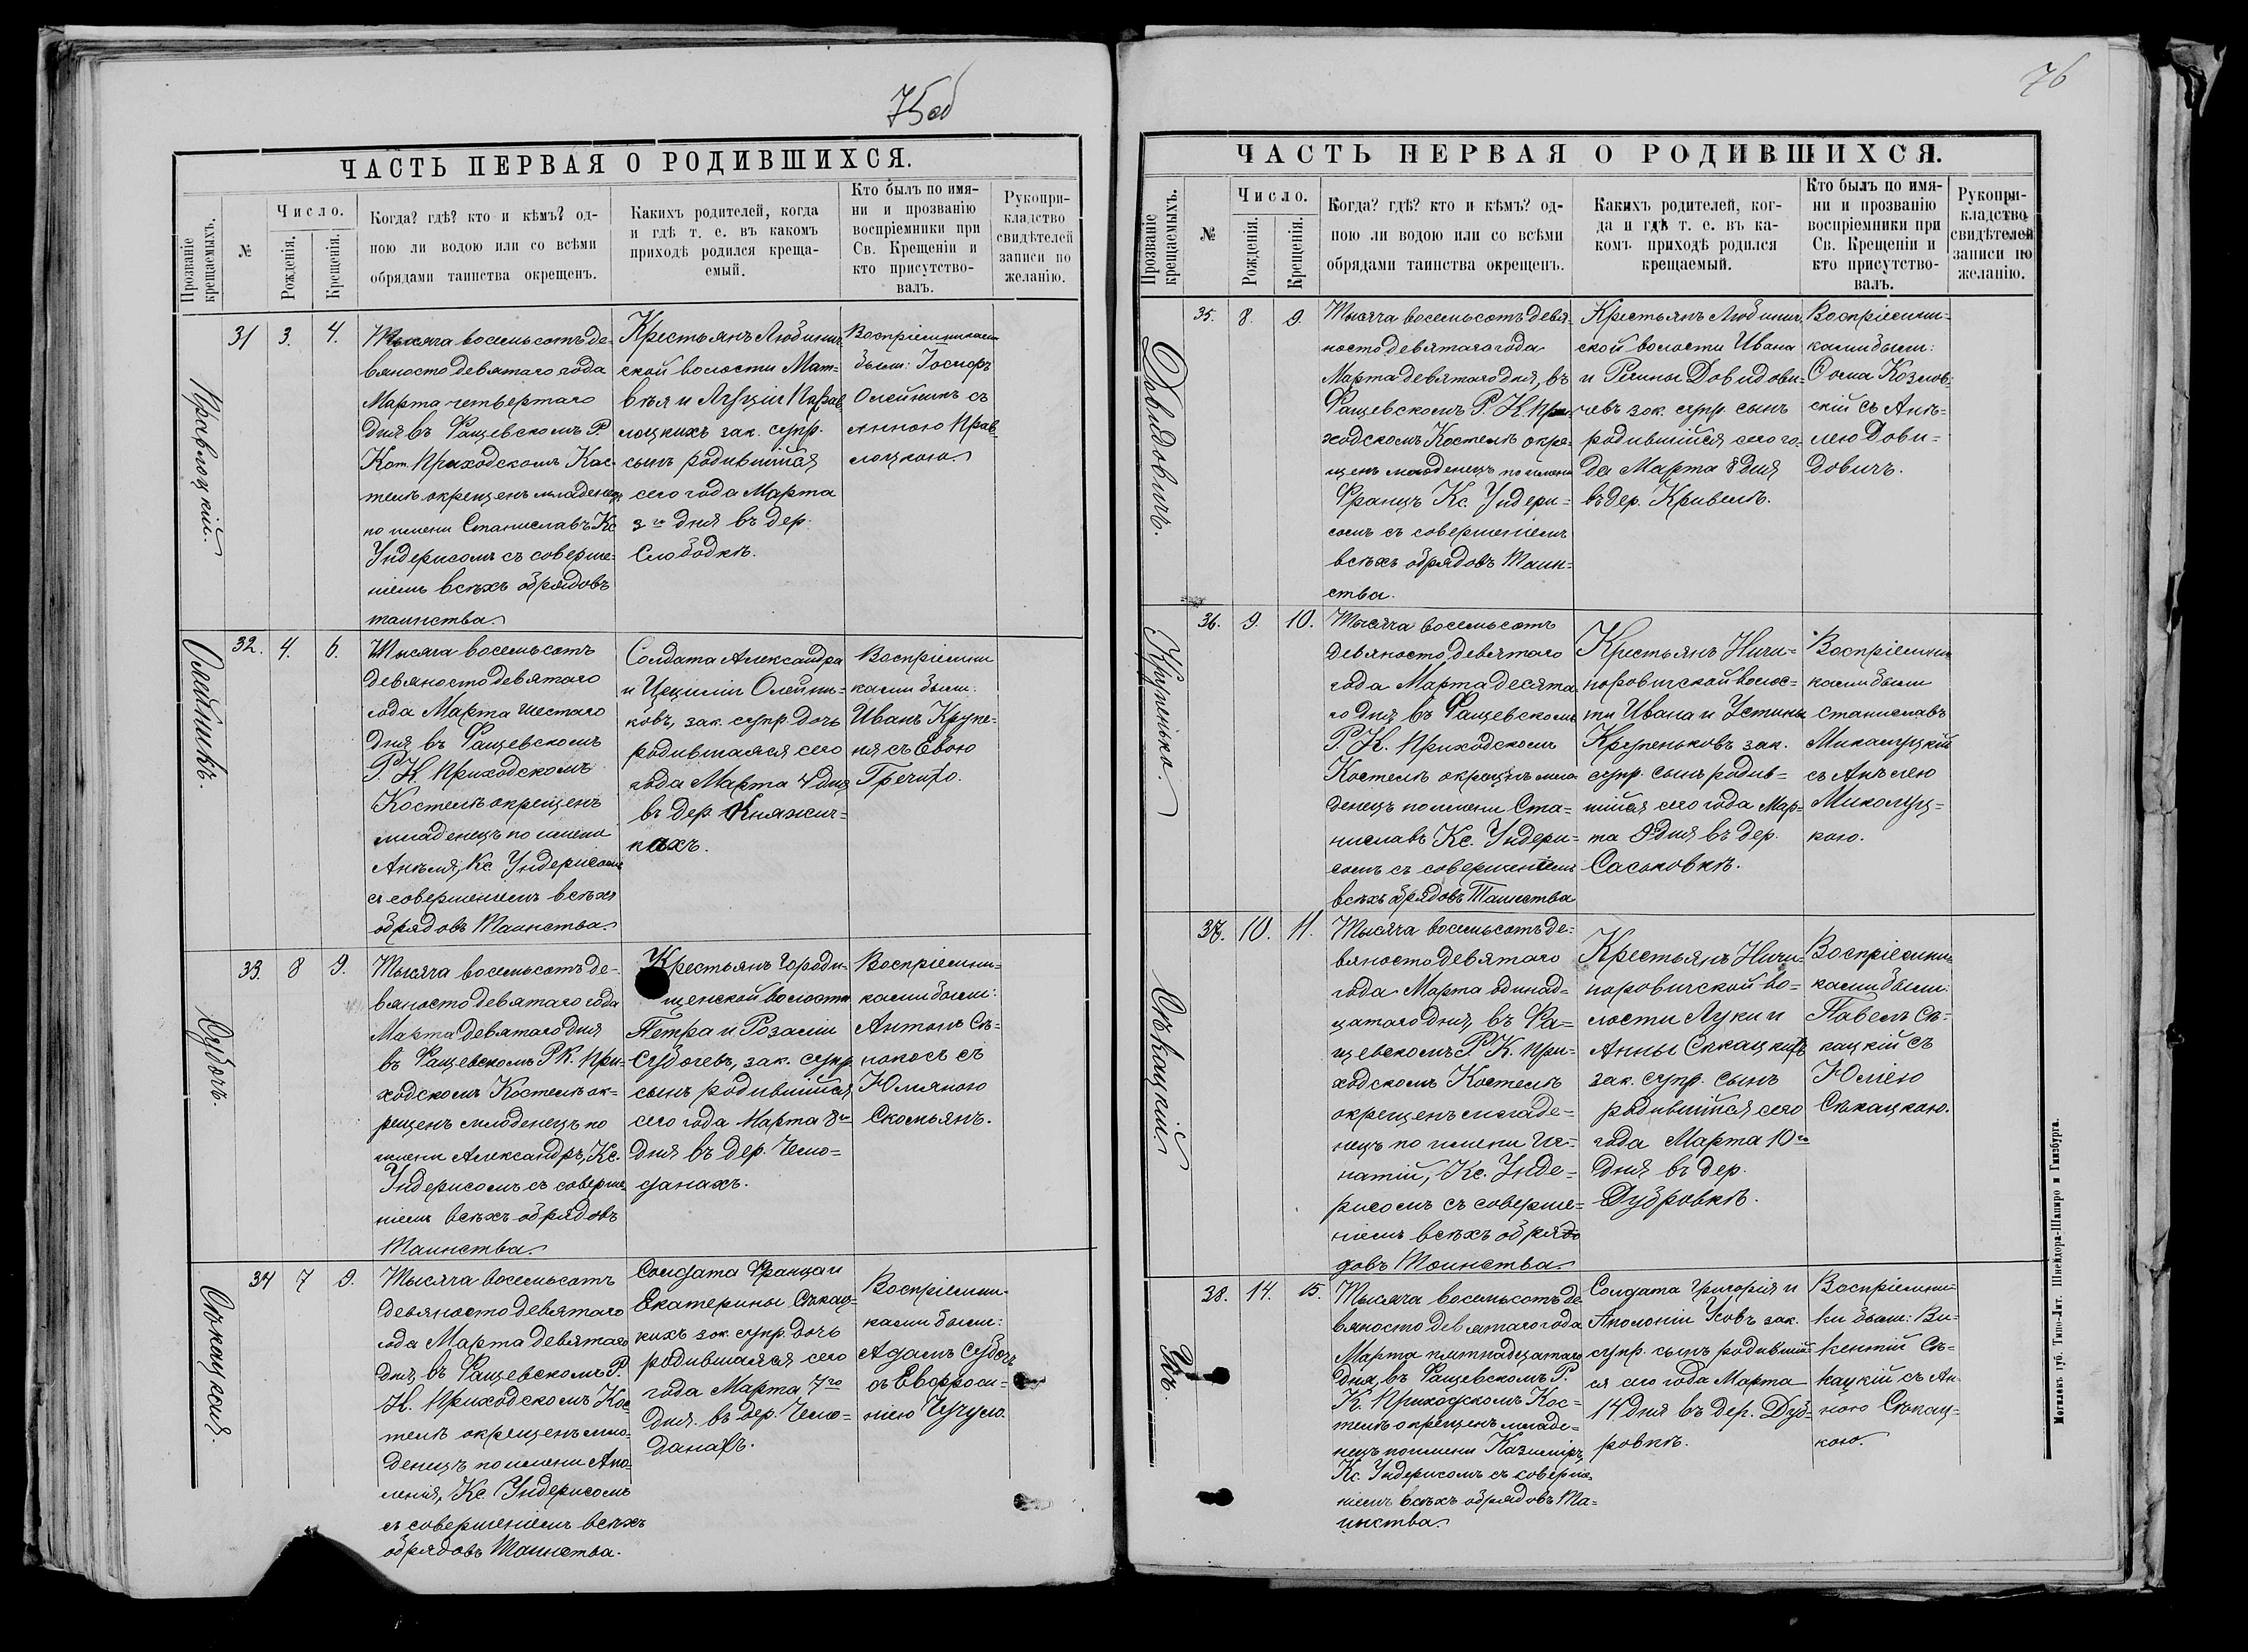 75об
ЧАСТЬ ПЕРВАЯ О РОДИВШИХСЯ.
Прозваніе крещаемыхъ.
№
Число.
Рожденія.
Крещенія.
Когда? гдѣ? кто и кѣмъ? од-
ною ли водою или со всѣми
обрядами таинства окрещенъ.
Какихъ родителей, когда
и гдѣ т. е. въ какомъ
приходѣ родился креща-
емый.
Кто былъ по имя-
ни и прозванію
воспріемники при
Св. Крещеніи и
кто присутство-
валъ.
Рукопри-
кладство
свидѣтелей
записи по
желанію.
31 3. 4.
Тысяча восемьсотъ де-
вяносто девятаго года
Марта четвертаго
дня въ Фащевскомъ Р.
Кат. Приходскомъ Кос-
телѣ окрещенъ младенецъ
по имени Станиславъ Кс
Ундерисомъ съ соверше-
ніемъ всѣхъ обрядовъ
таинства.
Крестьянъ Любинич.
ской волости Мат-
вѣя и Луціи
лоцкихъ зак. супр.
сынъ родившійся
сего года Марта
3го дня въ дер.
Слободкѣ.
Воспріемниками
были: Іосифъ
Олейникъ съ
Анною Прав-
лоцкою.
Правлоцкій.
32. 4. 6.
Олейникъ.
Тысяча восемьсотъ
девяносто девятаго
года Марта шестаго
дня въ Фащевскомъ
Р. К. Приходскомъ
Костелѣ окрещенъ
младенецъ по имени
Анѣля, Кс. Ундерисомъ
съ совершеніемъ всѣхъ
обрядовъ Таинства.
Солдата Александра
и Цециліи Олейни-
ковъ, зак. супр. дочь
родившаяся сего
года Марта 4 дня
въ дер. Княжич-
кахъ.
Воспріемни
ками были:
Иванъ Крупе-
ня съ Евою
Гречихо.
33. 8 9.
Субочъ.
Тысяча восемьсотъ де-
вяносто девятаго года
Марта девятаго дня
въ Фащевскомъ Р К. При-
ходскомъ Костелѣ ок-
рещенъ младенецъ по
имени Александръ, Кс.
Ундерисомъ съ соверше-
ніемъ всѣхъ обрядовъ
Таинства.
Крестьянъ Городи-
щенской волости
Петра и Розаліи
Субочевъ, зак. супр.
сынъ родившійся
сего года Марта 8го
дня въ дер. Чемо-
данахъ.
Воспріемни-
ками были:
Антонъ Сѣ-
нокосъ съ
Юліяною
Скомьянъ.
34 7 9.
Сѣкацкая.
Тысяча восемьсотъ
девяносто девятаго
года Марта девятаго
дня, въ Фащевскомъ Р.
К. Приходскомъ Кос-
телѣ окрещенъ мла-
денецъ по имени Апо-
лонія, Кс. Ундерисомъ
съ совершеніемъ всѣхъ
обрядовъ Таинства.
Солдата Франца и
Екатерины Сѣкац-
кихъ зак. супр. дочь
родившаяся сего
года Марта 7го
дня въ дер. Чемо-
данахъ.
Воспріемни-
ками были:
Адамъ Субочъ
съ Евфроси-
ніею
76
ЧАСТЬ ПЕРВАЯ О РОДИВШИХСЯ.
Прозваніе крещаемыхъ.
№
Число.
Рожденія.
Крещенія.
Когда? гдѣ? кто и кѣмъ? од-
ною ли водою или со всѣми
обрядами таинства окрещенъ.
Какихъ родителей, ког-
да и гдѣ т. е. въ ка-
комъ приходѣ родился
крещаемый.
Кто былъ по имя-
ни и прозванію
воспріемники при
Св. Крещеніи и
кто присутство-
валъ.
Рукопри-
кладство
свидѣтелей
записи по
желанію.
35. 8. 9.
Довидовичъ.
Тысяча восемьсотъ девя-
носто девятаго года
Марта девятаго дня, въ
Фащевскомъ Р. К. При-
ходскомъ Костелѣ окре-
щенъ младенецъ по имени
Францъ Кс. Ундери-
сомъ съ совершеніемъ
всѣхъ обрядовъ Таин-
ства.
Крестьянъ Любинич.
ской волости Ивана
и Регины Довидови-
чевъ зак. супр. сынъ
родившійся сего го-
да Марта 8 дня
въ дер. Кривелѣ.
Воспріемни-
ками были:
Ѳома Козлов-
скій съ Анѣ-
лею Дови-
довичъ.
36. 9. 10.
Крупенько.
Тысяча восемьсотъ
девяносто девятаго
года Марта десята-
го дня въ Фащевскомъ
Р. К. Приходскомъ
Костелѣ окрещенъ мла-
денецъ по имени Ста-
ниславъ Кс. Ундери-
сомъ съ совершеніемъ
всѣхъ обрядовъ Таинства
Крестьянъ Ничи-
поровичской волос-
ти Ивана и Устины
Крупеньковъ зак.
супр. сынъ родив-
шійся сего года Мар-
та 9 дня въ дер.
Саськовкѣ.
Воспріемни
ками были
Станиславъ
Миколуцкій
съ Анѣлею
Миколуц-
кою.
37. 10. 11.
Сѣкацкій
Тысяча восемьсотъ де-
вяносто девятаго
года Марта одинад-
цатаго дня, въ Фа-
щевскомъ Р. К. При-
ходскомъ Костелѣ
окрещенъ младе-
нецъ по имени Иг-
натій, Кс. Унде-
рисомъ съ соверше-
ніемъ всѣхъ обрядо
довъ Таинства.
Крестьянъ Ничи-
поровичской во-
лости Луки и
Анны Сѣкацкихъ
зак. супр. сынъ
родившійся сего
года Марта 10го
дня въ дер.
Дубровкѣ.
Воспріемни-
ками были:
Павелъ Сѣ-
кацкій съ
Юліею
Сѣкацкою.
38. 14. 15.
Усъ.
Тысяча восемьсотъ де
вяносто девятаго года
Марта пятнадцатаго
дня, въ Фащевскомъ Р.
К. Приходскомъ Кос-
телѣ окрещенъ младе-
нецъ по имени Казиміръ,
Кс. Ундерисомъ съ соверше-
ніемъ всѣхъ обрядовъ Та-
инства.
Солдата Григорія и
Аполоніи Усовъ зак.
супр. сынъ родившій-
ся сего года Марта
14 дня въ дер. Дуб-
ровкѣ.
Воспріемни-
ки были: Ви-
кентій Сѣ-
кацкій съ Ан-
ною Сѣкац-
кою.
Могилевъ губ. Типо-Лит. Шнейдора-Шапиро и Гинзбурга.